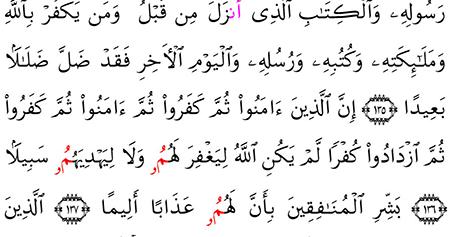 رَسُولِهِۦ وَٱلْكِتَٰبِ ٱلَّذِى أَنزَلَ مِن قَبْلُ وَمَن يَكْفُرْ بِٱللَّهِ
وَمَلَٰٓئِكَتِهِۦ وَكُتُبِهِۦ وَرُسُلِهِۦ وَٱلْيَوْمِ ٱلْأَخِرِ فَقَد ضَّلَّ ضَلَٰلَۢا
بَعِيدًا ﴿١٣٥﴾ إِنَّ ٱلَّذِينَ ءَامَنُواْ ثُمَّ كَفَرُواْ ثُمَّ ءَامَنُواْ ثُمَّ كَفَرُواْ
ثُمَّ ٱزْدَادُواْ كُفْرًا لَّمْ يَكُنِ ٱللَّهُ لِيَغْفِرَ لَهُمُۥ وَلَا لِيَهْدِيَهُمُۥ سَبِيلَۢا
﴿١٣٦﴾ بَشِّرِ ٱلْمُنَٰفِقِينَ بِأَنَّ لَهُمُۥ عَذَابًا أَلِيمًا ﴿١٣٧﴾ ٱلَّذِينَ